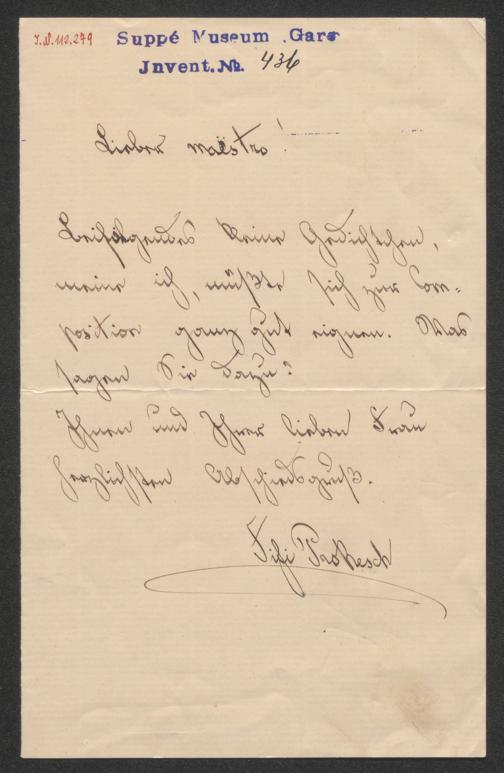 I.N. 112.279
Suppé Museum Gars
Invent.No. 436
Lieber Maëstro!
Beifolgendes kleine Gedichtchen,
meine ich, müßte sich zur Com-
position ganz gut eignen. Was
sagen Sie dazu?
Ihnen und Ihrer lieben Frau
herzlichsten Abschiedsgruß.
Fifi Prokesch